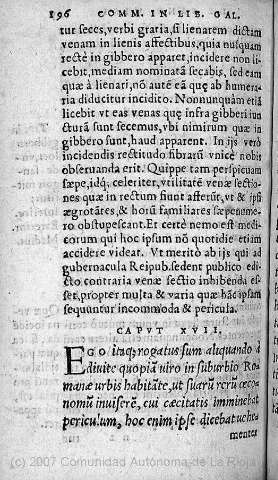 196 COMM. IN LIB. GAL.
tur seces, verbi gratia, si lienarem dictam
venam in lienis affectibus, quia nusquam
rectè in gibbero apparet, incidere non li-
cebit, mediam nominatā secabis, sed eam
quæ à lienari, nō autē eā quę ab humera-
ria diducitur incidito. Nonnunquàm etiā
licebit vt eas venas quę infra gibberi iun
cturā sunt secemus, vbi nimirum quæ in
gibbero sunt, haud apparent. In ijs verò
incidendis rectitudo fibrarū vnicè nobis
obseruanda erit. Quippe tam perspicuam
sæpe, idq; celeriter, vtilitatē venæ sectio-
nes quæ in rectum fiunt afferūt, vt & ipsi
ægrotātes, & horū familiares sæpenume-
ro obstupescant. Et certè nemo est medi-
corum qui hoc ipsum nō quotidie etiam
accidere videat. Vt meritò ab ijs qui ad
gubernacula Reipub. sedent publico edi-
cto contraria venæ sectio inhibenda es-
set, propter multa & varia quæ hāc ipsam
sequuntur incommoda & pericula.
CAPVT XVII.
EGO itaq; rogatus sum aliquando à
diuite quopiā viro in suburbio Ro
manæ urbis habitāte, ut suarū rerū œco-
nomū inuiserē, cui cæcitatis imminebat
periculum, hoc enim ipse dicebat uehe
menter
(c) 2007 Comunidad Autónoma de La Rioja